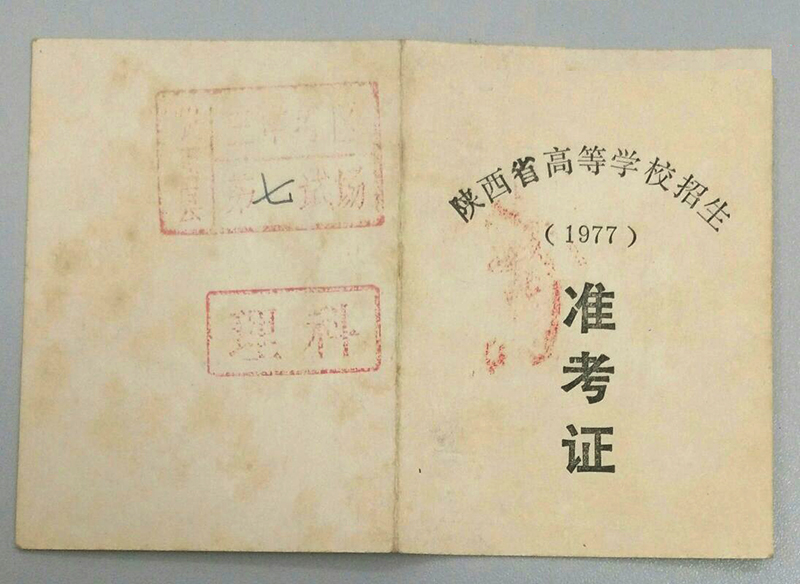 第七试场
理科
陕西省高等学校招生
（1977）
准考证